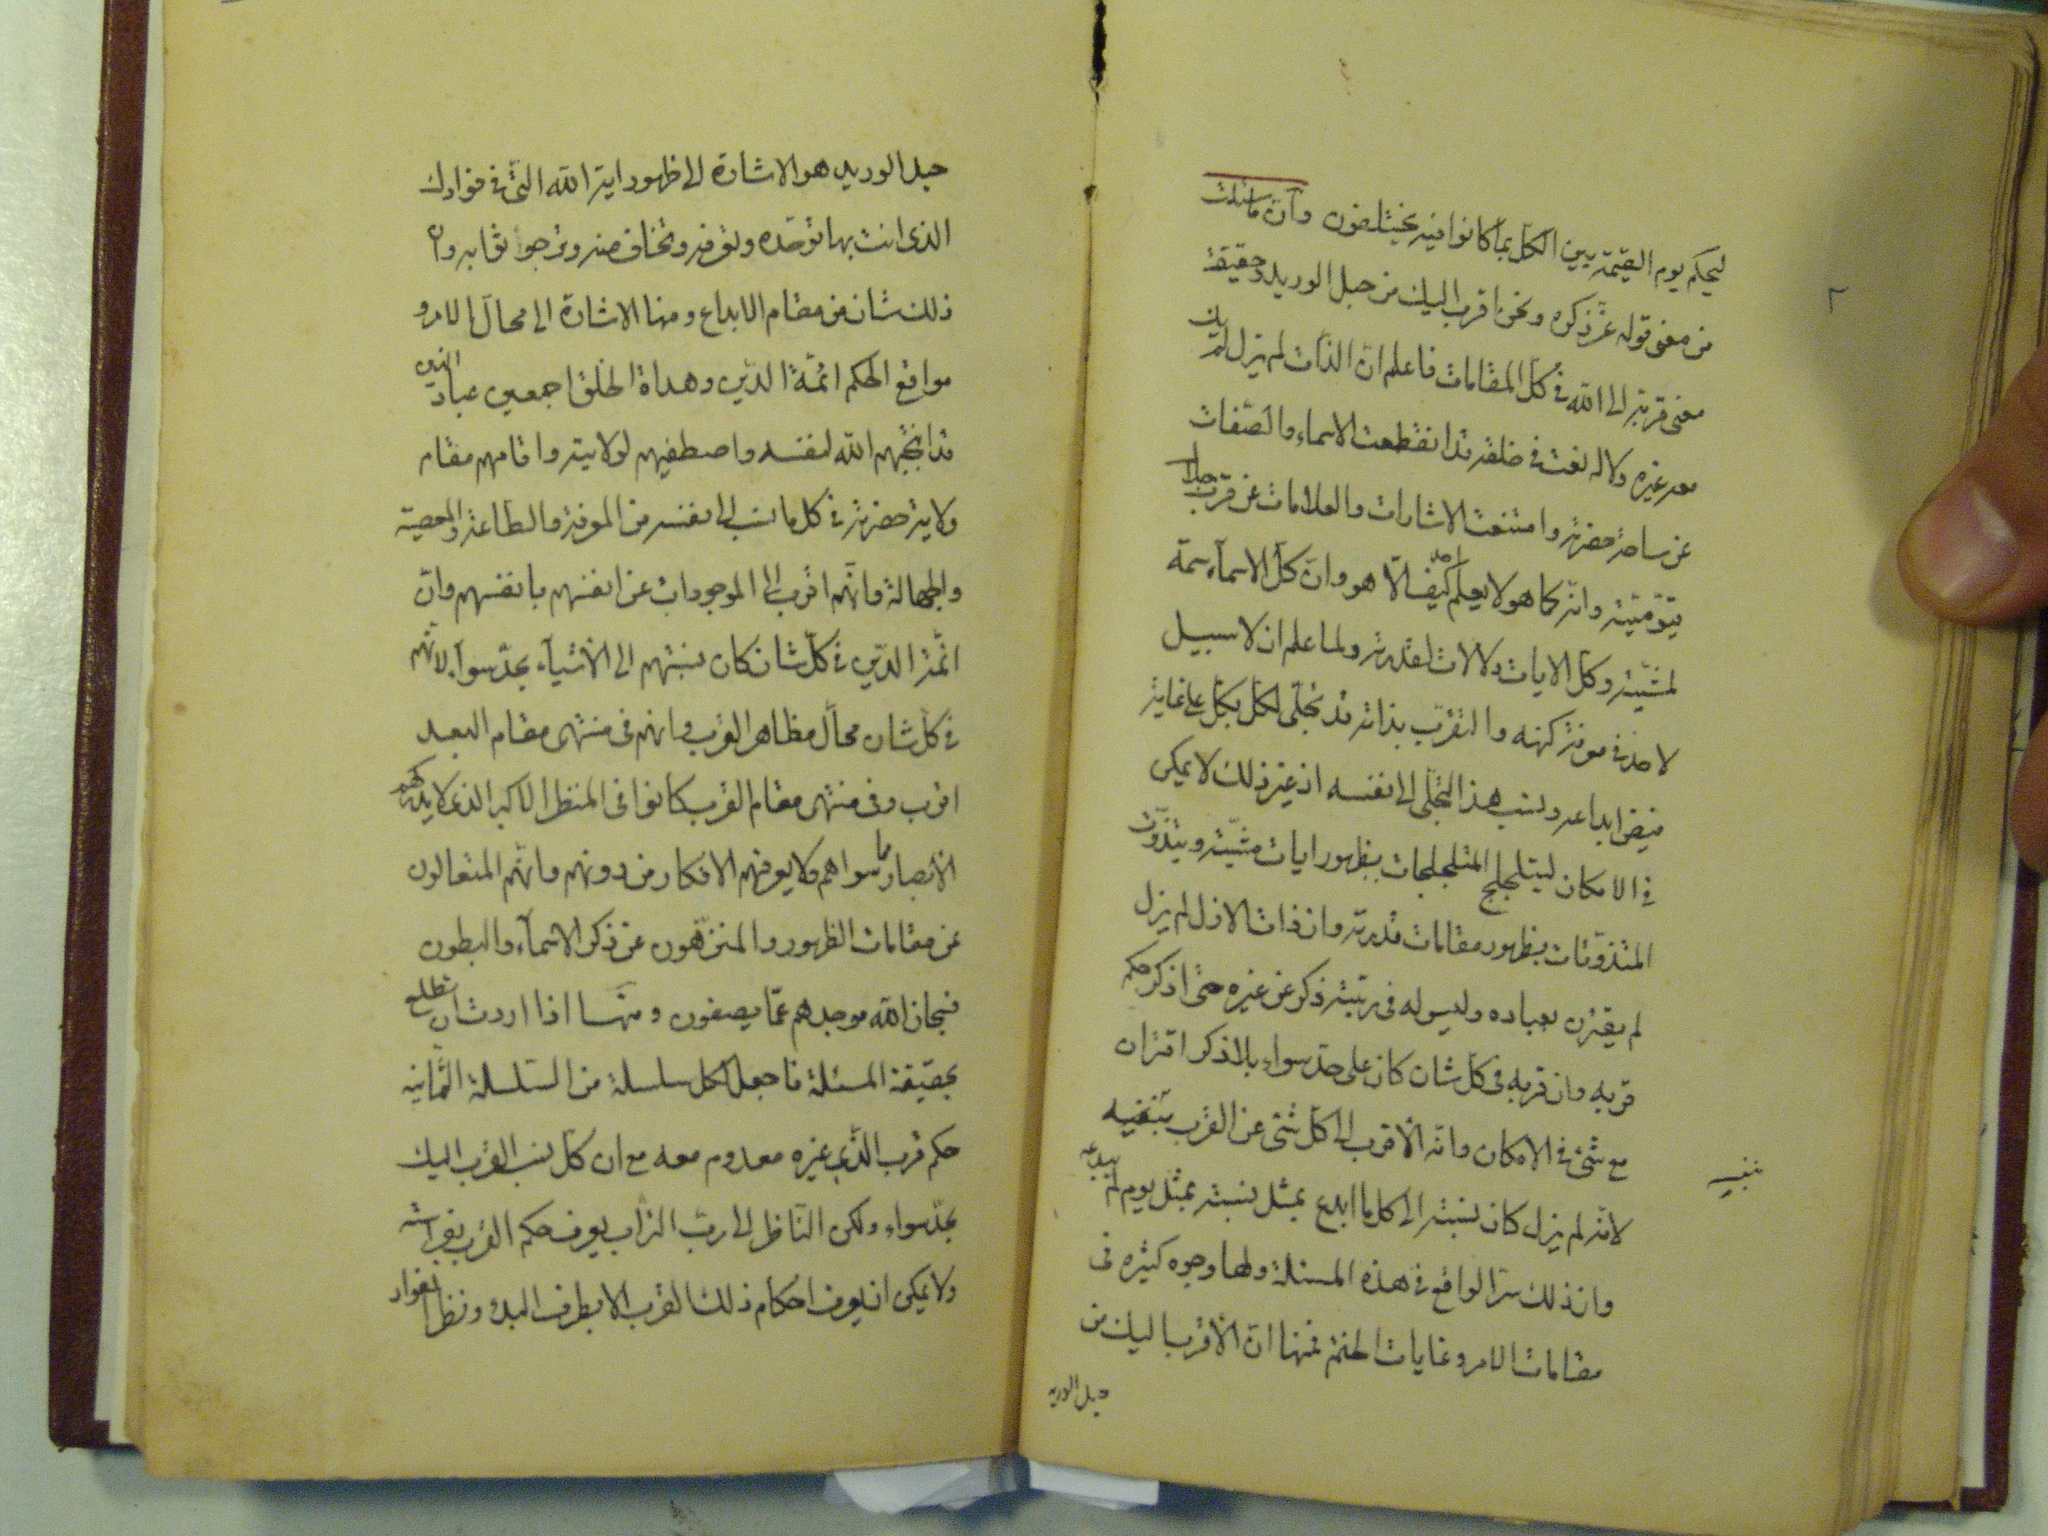 ٢
ليحكم يوم القيمة بين الكل بما كانوا فيه يختلفون وان ما سئلت
من معنى قوله عز ذكره ونحن اقرب اليك من حبل الوريد وحقيقة
معنى قربته الى الله في كل المقامات فاعلم ان الذات لم يزل لم يك
معه غيره ولا له نعت في خلقه قد انقطعت الاسماء والصفات
عن ساحة حضرته وامتنعت الاشارات والعلامات عن قرب جلال
قيوميته وانه كما هو لا يعلم احد كيف الا هو وان كل الاسمآء سمة
لمشيته وكل الايات دلالات لقدرته ولما علم ان لا سبيل
لاحد في معرفة كنهه والتقرب بذاته قد تجلى لكل بكل على غاية
فيض ابداعه ونسب هذا التجلى الى نفسه اذ غير ذلك لا يمكن
في الامكان ليتلجلج المتلجلجات بظهور ايات مشيته ويتذوت
المتذوتات بظهور مقامات قدرته وان ذات الازل لم يزل
لم يقترن بعباده وليس له في رتبته ذكر عن غيره حتى اذكر حكم
قربه وان قربه في كل شان كان على حد سواء بلا ذكر اقتران
مع شئ في الامكان وانه الاقرب الى كل شئ عن القرب بنفسه
بنفسه
لانه لم يزل كان نسبته الى كل ما ابدع بمثل نسبته بمثل يوم لم يبدعه
وان ذلك سر الواقع في هذه المسئلة ولها وجوه كثيرة في
مقامات الامر وغايات الختم فمنها ان الاقرب اليك من
حبل الوريد
حبل الوريد هو الاشارة الى ظهور اية الله التي في فؤادك
الذى انت بها توحده وتعرفه وتخاف منه وترجوا ثوابه وان
ذلك شان من مقام الابداع ومنها الاشارة الى محال الامر و
مواقع الحكم ائمة الدين وهداة الخلق اجمعين عباد الذين
قد انتجبهم الله لنفسه واصطفيهم لولايته واقامهم مقام
ولاية حضرته في كل ما نسب الى نفسه من المعرفة والطاعة والمعصية
والجهالة وانهم اقرب الى الموجودات عن انفسهم بانفسهم وان
ائمة الدين في كل شان كان نسبتهم الى الاشيآء بحد سوآء لانهم
في كل شان محال مظاهر القرب وانهم في منتهى مقام البعد
اقرب وفي منتهى مقام القرب كانوا في المنظر الاكبر الذى لا يدركهم
الابصار ما سواهم ولا يعرفهم الافكار من دونهم وانهم المتعالون
عن مقامات الظهور والمنزهون عن ذكر الاسمآء والبطون
فسبحان الله موجدهم عما يصفون ومنها اذا اردت ان تطلع
بحقيقة المسئلة فاجعل لكل سلسلة من السلسلة الثمانية
حكم قرب الذى غيره معدوم معه مع ان كل نسب القرب اليك
بحد سواء ولكن الناظر الى رب التراب يعرف حكم القرب
ولا يمكن ان يعرف احكام ذلك القرب الا بطرف البدء ونظر الفواد